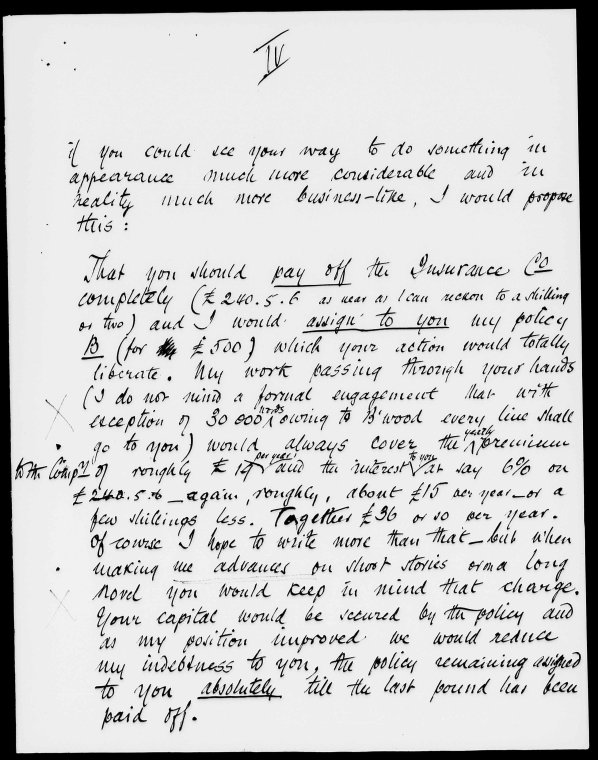 IV
if you could see your way to do something in
appearance much more considerable and in
reality much more business-like, I would propose
this:
That you should pay off the Insurance Co
completely (£240.5.6 as near as I can reckon to a shilling
or two) and I would assign to you my policy
B (for £500) which your action would totally
liberate. My work passing through your hands
(I do not mind a formal engagement that with
exception of 30 000 words owing to B'wood every line shall
go to you) would always cover the yearly premium
to the Comp'y of roughly £ per year and the interest to you at say 6% on
£240.5.6 – again, roughly, about £15 per year – or a
few shillings less. Together £36 or so per year.
Of course I hope to write more than that – but when
making me advances on short stories or on a long
novel you would keep in mind that charge.
Your capital would be secured by the policy and
as my position improved we would reduce
my indebtness to you, the policy remaining assigned
to you absolutely till the last pound has been
paid off.